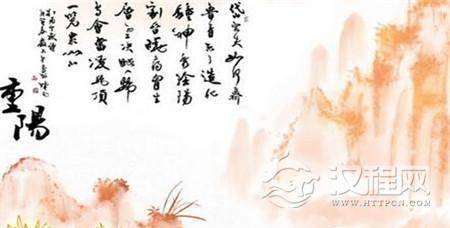 岱宗夫如何齊
魯青未了造化
鍾神秀陰陽
割昏曉蕩胸生
層雲決眥入歸
鳥會當凌絕頂
一覽眾山小
重陽
汉程网
WWW.HTTPCN.COM